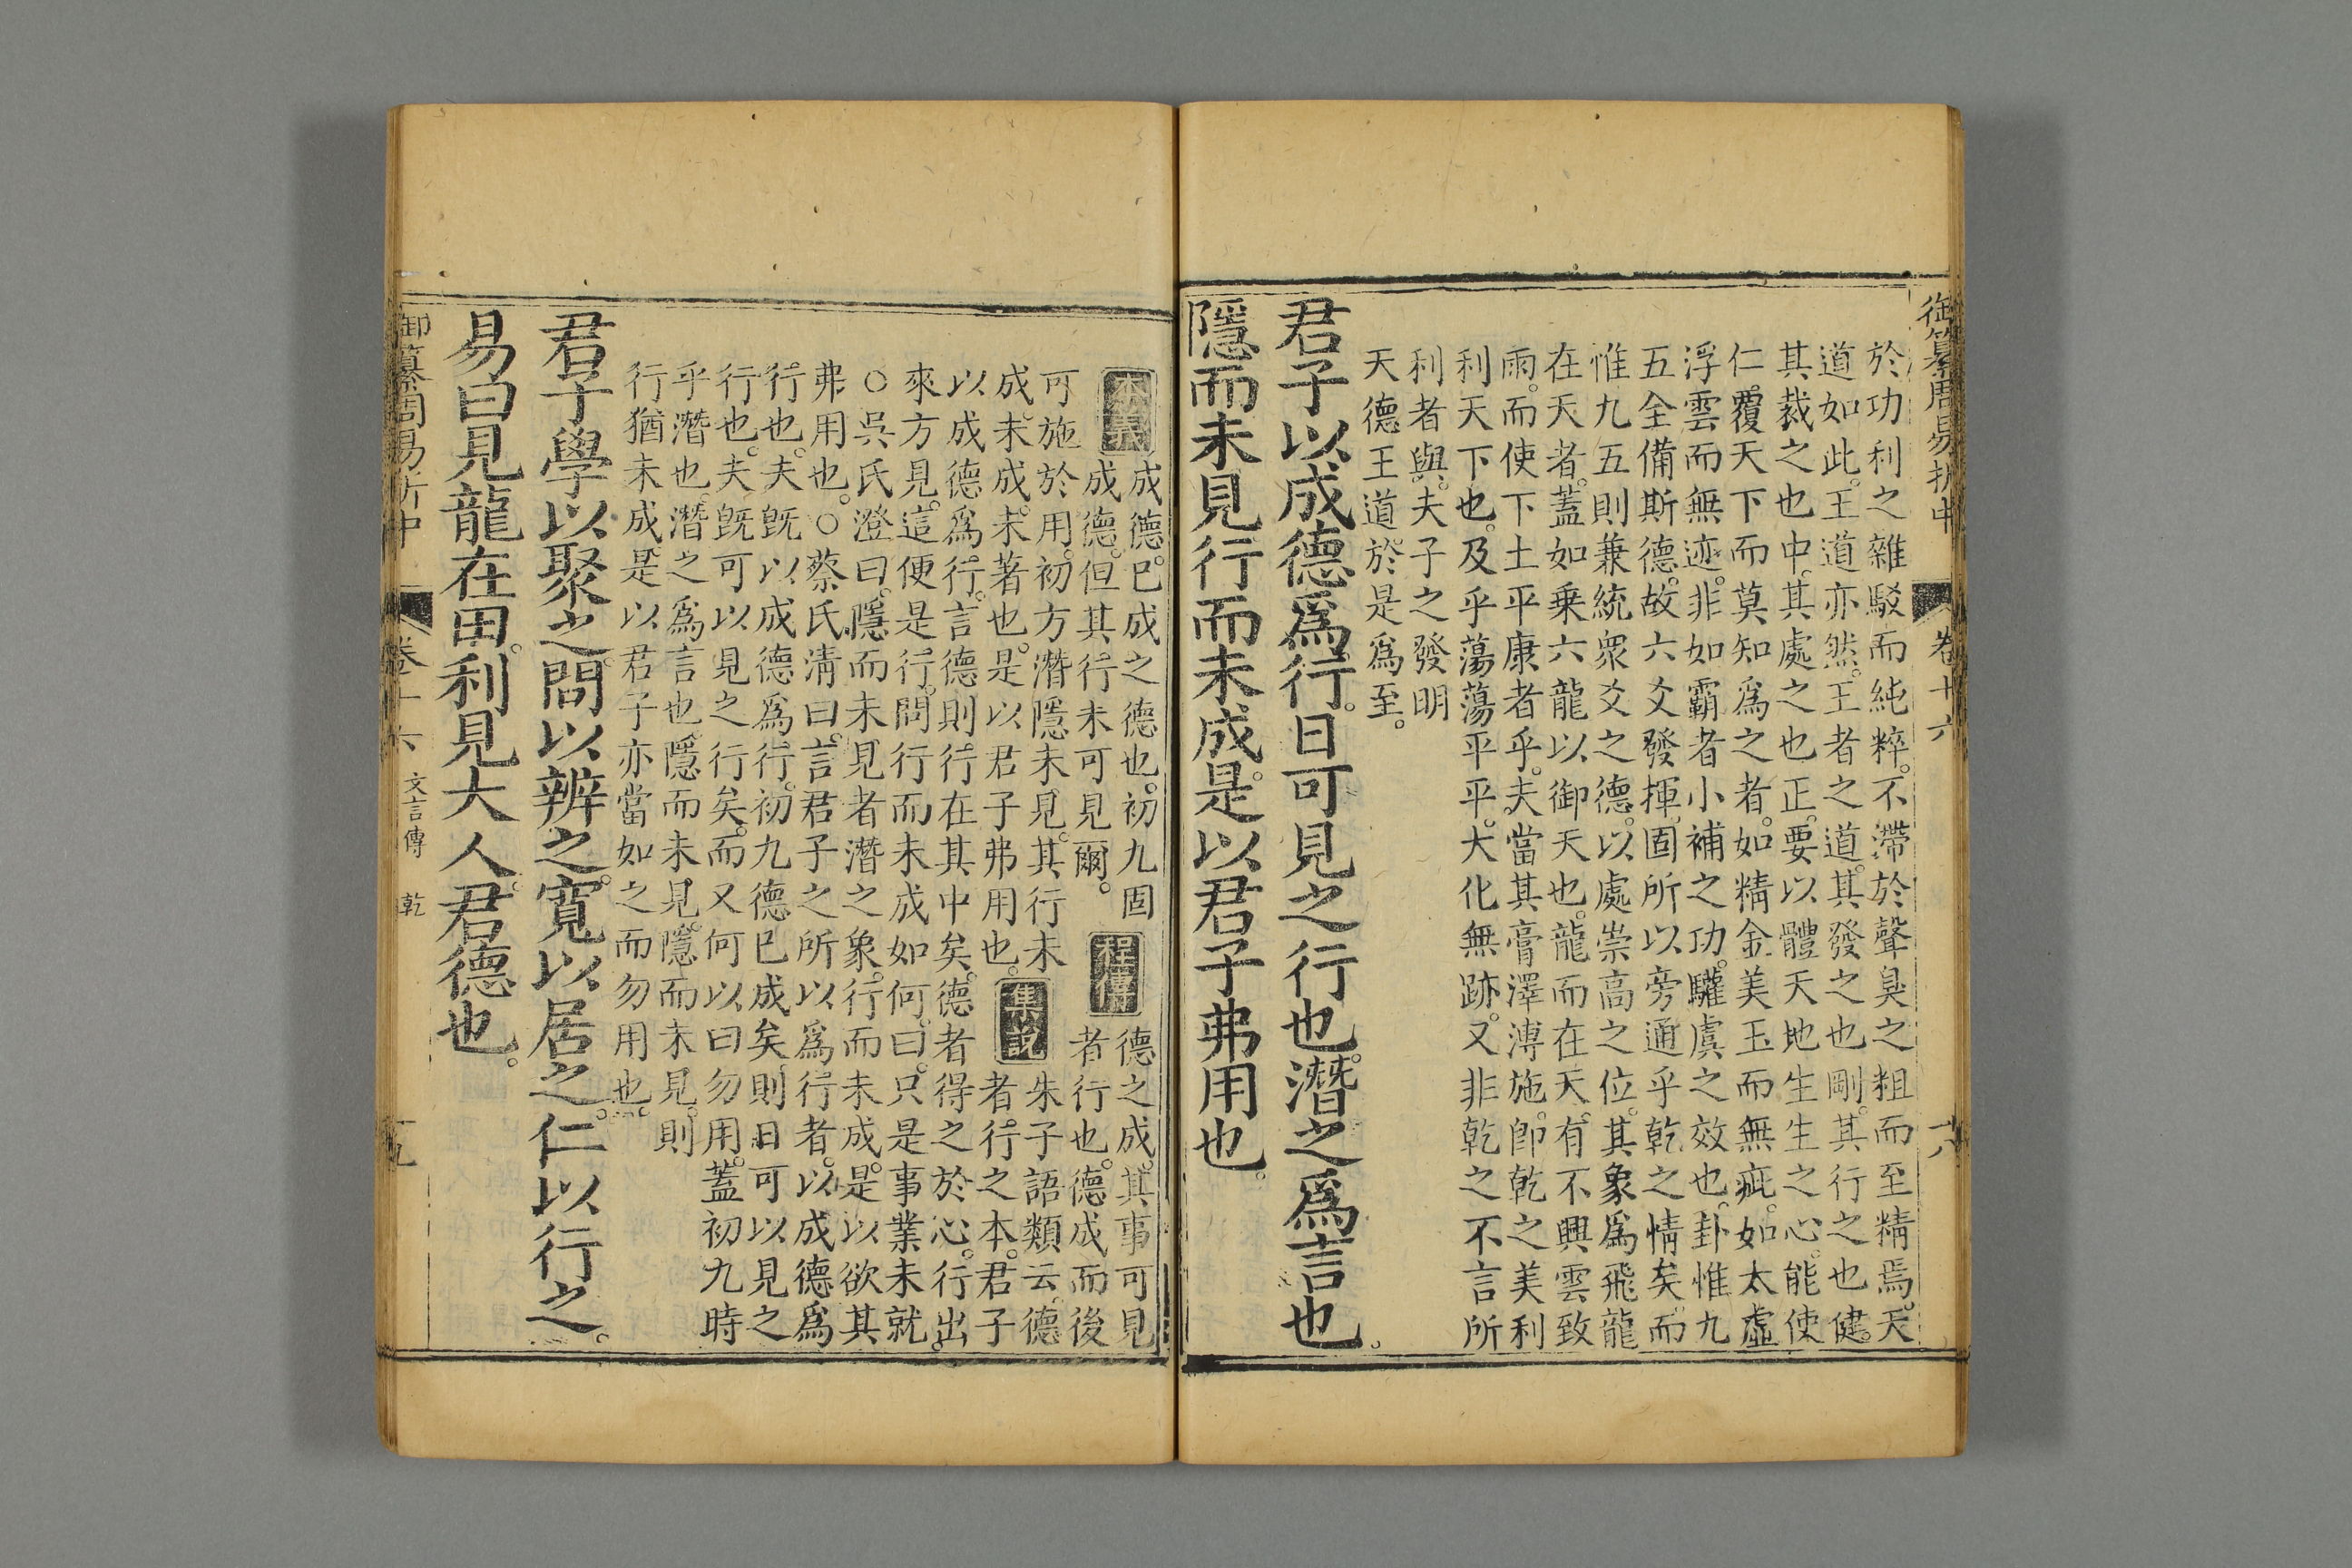 御纂周易折中
卷十六
十八
於功利之雜駁而純粹不滯於聲臭之粗而至精焉天
道如此王道亦然王者之道其發之也剛其行之也健
其裁之也中其處之也正要以體天地生生之心能使
仁覆天下而莫知爲之者如精金美玉而無疵如太虛
浮雲而無迹非如霸者小補之功驩虞之效也卦惟九
五全備斯德故六爻發揮固所以旁通乎乾之情矣而
惟九五則兼統衆爻之德以處崇高之位其象爲飛龍
在天者蓋如乗六龍以御天也龍而在天有不興雲致
雨而使下土平康者乎夫當其膏澤溥施卽乾之美利
利天下也及乎蕩蕩平平大化無跡又非乾之不言所
利者與夫子之發明
天德王道於是爲至
君子以成德爲行日可見之行也潛之爲言也
隱而未見行而未成是以君子弗用也
本義
成德已成之德也初九固
成德但其行未可見爾
程傳
德之成其事可見
者行也德成而後
可施於用初方潛隱未見其行未
成未成未著也是以君子弗用也
集說
朱子語類云德
者行之本君子
以成德爲行言德則行在其中矣德者得之於心行出
來方見這便是行問行而未成如何曰只是事業未就
○吳氏澄曰隱而未見者潛之象行而未成是以欲其
弗用也○蔡氏淸曰言君子之所以爲行者以成德爲
行也夫旣以成德爲行初九德已成矣則日可以見之
行也夫旣可以見之行矣而又何以曰勿用蓋初九時
乎潛也潛之爲言也隱而未見隱而未見則
行猶未成是以君子亦當如之而勿用也
君子學以聚之問以辨之寬以居之仁以行之
易曰見龍在田利見大人君德也
御纂周易折中
卷十六
文言傳 乾
十九